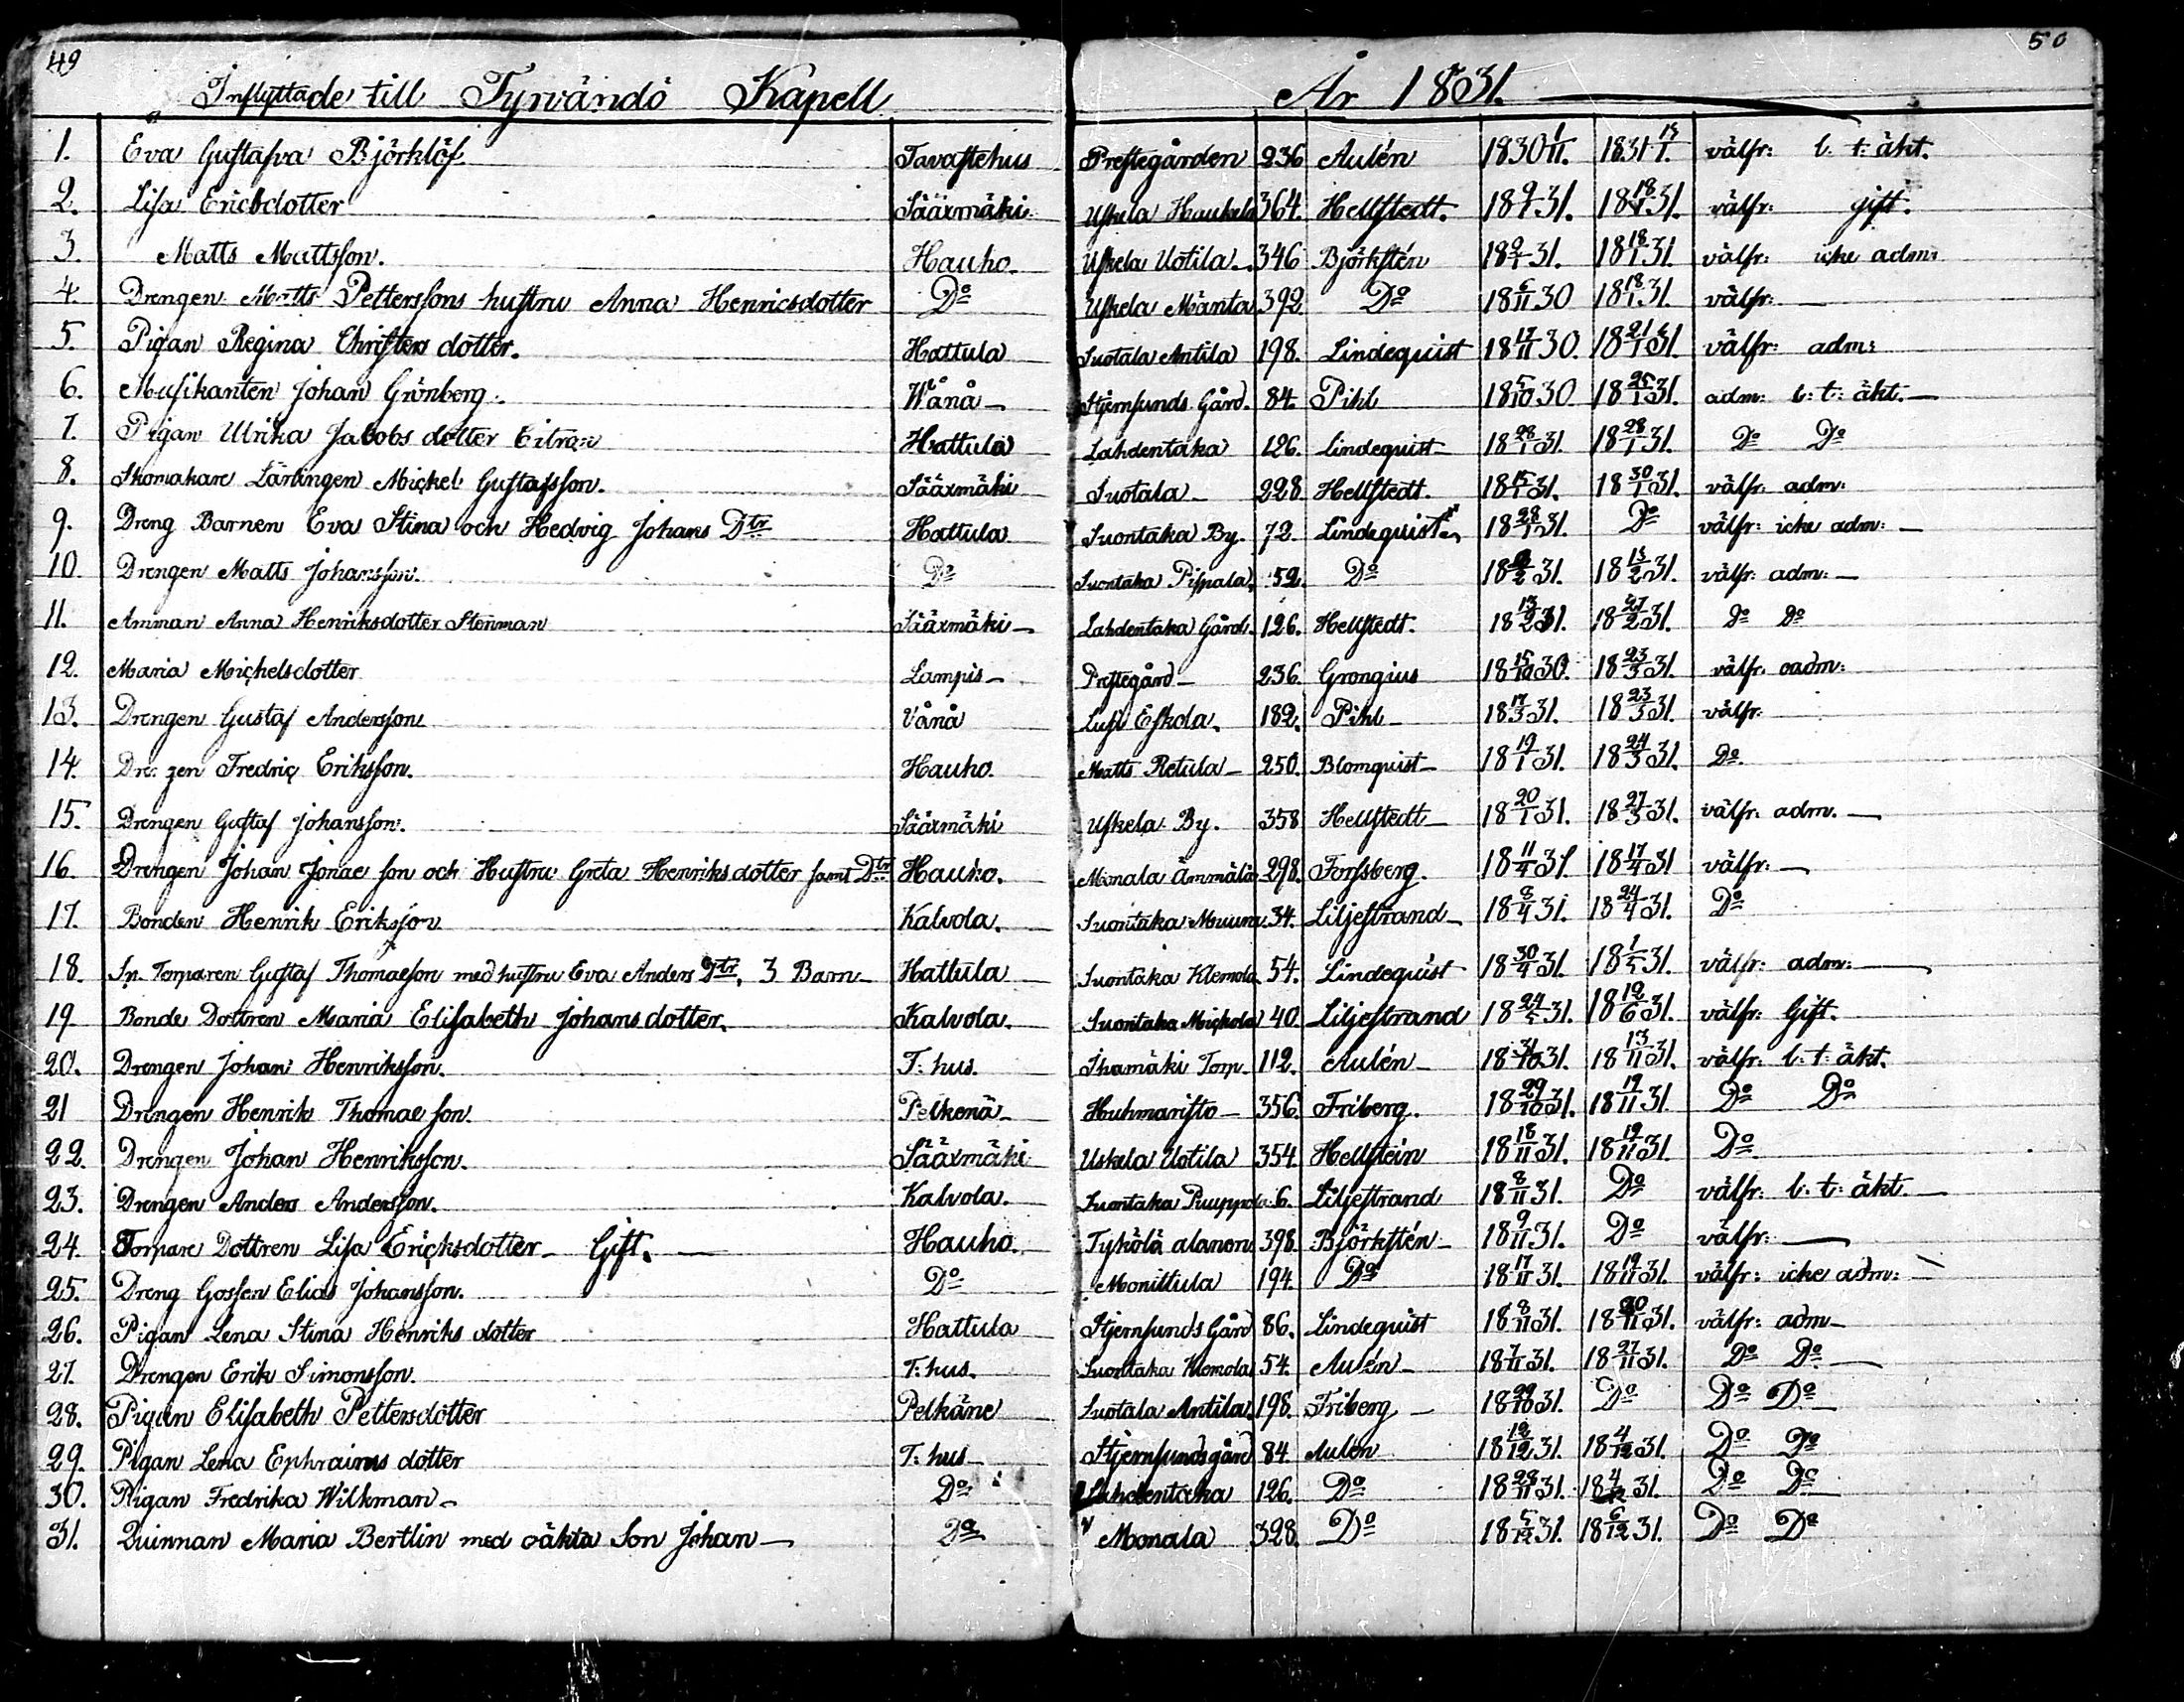 49
50
Inflyttade till Tyrvändö Kapell År 1831.
1. Eva Gustafva Björklöf. Tavastehus Prestegården 236 Aulén 1830 1/11. 1831 15/1. välfr: l. t: äkt.
2. Lisa Ericsdotter Sääxmäki Uskela Haukela 364. Hellstedt. 18 9/1 31. 18 18/1 31. välfr: gift.
3. Matts Mattsson. Hauho. Uskela Uotila 346 Björkstén 18 9/1 31. 18 18/1 31. välfr: icke adm:
4. Drengen Matts Petterssons hustru Anna Henricsdotter Do Uskela Mänta 392. Do 18 6/11 30 18 18/1 31. välfr:
5. Pigan Regina Christers dotter. Hattula Suotala Antila 198. Lindequist 18 17/11 30. 18 21/1 31. välfr: adm:
6. Musikanten Johan Grönberg. Wånå Stjernsunds Gård. 84. Pihl 18 5/10 30 18 25/1 31. adm: l: t: äkt.
7. Pigan Ulrika Jacobs dotter Citron Hattula Lahdentaka 126. Lindequist 18 28/1 31. 18 28/1 31. Do Do
8. Skomakare Lärlingen Mickel Gustafsson. Sääxmäki Suotala 228 Hellstedt. 18 15/1 31. 18 30/1 31. välfr: adm:
9. Dreng Barnen Eva Stina och Hedvig Johans Dtr Hattula Suontaka By. 72. Lindequist 18 28/1 31. Do välfr: icke adm:
10 Drengen Matts Johansson. Do Suontaka Pispala. 52. Do 18 /2 31. 18 13/2 31. välfr: adm:
11. Amman Anna Henriksdotter Stenman Sääxmäki Lahdentaka Gård. 126. Hellstedt. 18 13/2 31. 18 27/2 31. Do Do
12. Maria Michelsdotter Lampis Prestegård 236. Grongius 18 15/10 30. 18 23/3 31. välfr: oadm:
13. Drengen Gustaf Andersson Vånå Lusi Eskola. 182. Pihl 18 17/3 31. 18 23/3 31. välfr:
14. Drengen Fredric Eriksson. Hauho. Matts Retula 250. Blomquist 18 19/1 31. 18 24/3 31. Do
15. Drengen Gustaf Johansson. Sääxmäki Uskela By. 358 Hellstedt 18 20/1 31. 18 27/3 31. välfr: adm.
16. Drengen Johan Jonae son och Hustru Greta Henriksdotter samt Dtr Hauho. Monala Ämmälä 298. Forssberg. 18 11/4 31 18 17/4 31 välfr:
17. Bonden Henrik Eriksson Kalvola. Suontaka 34. Liljestrand 18 8/4 31. 18 24/4 31. Do
18. Sn. Torparen Gustaf Thomaeson med hustru Eva Anders Dtr. 3 Barn Hattula Suontaka Klemola 54. Lindequist 18 30/4 31. 18 1/5 31. välfr: adm:
19 Bonde Dottren Maria Elisabeth Johans dotter. Kalvola. Suontaka Mickola 40. Liljestrand 18 24/5 31. 18 12/6 31. välfr: Gift.
20. Drengen Johan Henriksson. T: hus. Ihamäki Torp 112. Aulén 18 31/10 31. 18 13/11 31. välfr: l: t: äkt.
21 Drengen Henrik Thomae son. Pelkenä Huhmaristo 356. Friberg. 18 29/10 31. 18 19/11 31. Do Do
22. Drengen Johan Henriksson. Sääxmäki Uskela Uotila 354. Hellstein 18 18/11 31. 18 19/11 31. Do
23. Drengen Anders Andersson. Kalvola. Suontaka Puuppola 6. Liljestrand 18 8/11 31. Do välfr: l: t: äkt.
24. Torpare Dottren Lisa Ericksdotter Gift. Hauho. Tykölä alanen 398. Björkstén 18 9/11 31. Do välfr:
25. Dreng Gossen Elias Johansson. Do Monittula 194. Do 18 17/11 31. 18 19/11 31. välfr: icke adm:
26. Pigan Lena Stina Henriks dotter Hattula Stjernsunds Gård 86. Lindequist 18 8/11 31. 18 20/11 31. välfr: adm
27. Drengen Erik Simonsson. T: hus. Suontaka Klemola 54. Aulén 18 7/11 31. 18 27/11 31. Do Do
28. Pigan Elisabeth Pettersdotter Pelkäne Suotala Antila. 198. Friberg 18 29/10 31. Do Do Do
29. Pigan Lena Ephraims dotter T: hus Stjernsundsgård 84. Aulén 18 12/12 31. 18 4/12 31. Do Do
30. Pigan Fredrika Wilkman Do Lahdentaka 126. Do 18 28/11 31. 18 4/12 31. Do Do
31. Quinnan Maria Bertlin med oäkta Son Johan Do Monala 398. Do 18 5/12 31. 18 6/12 31. Do Do